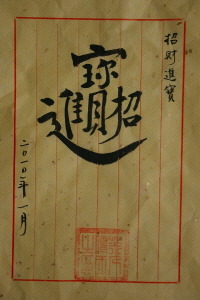 招財進寶
招財進寶
二〇一〇年一月